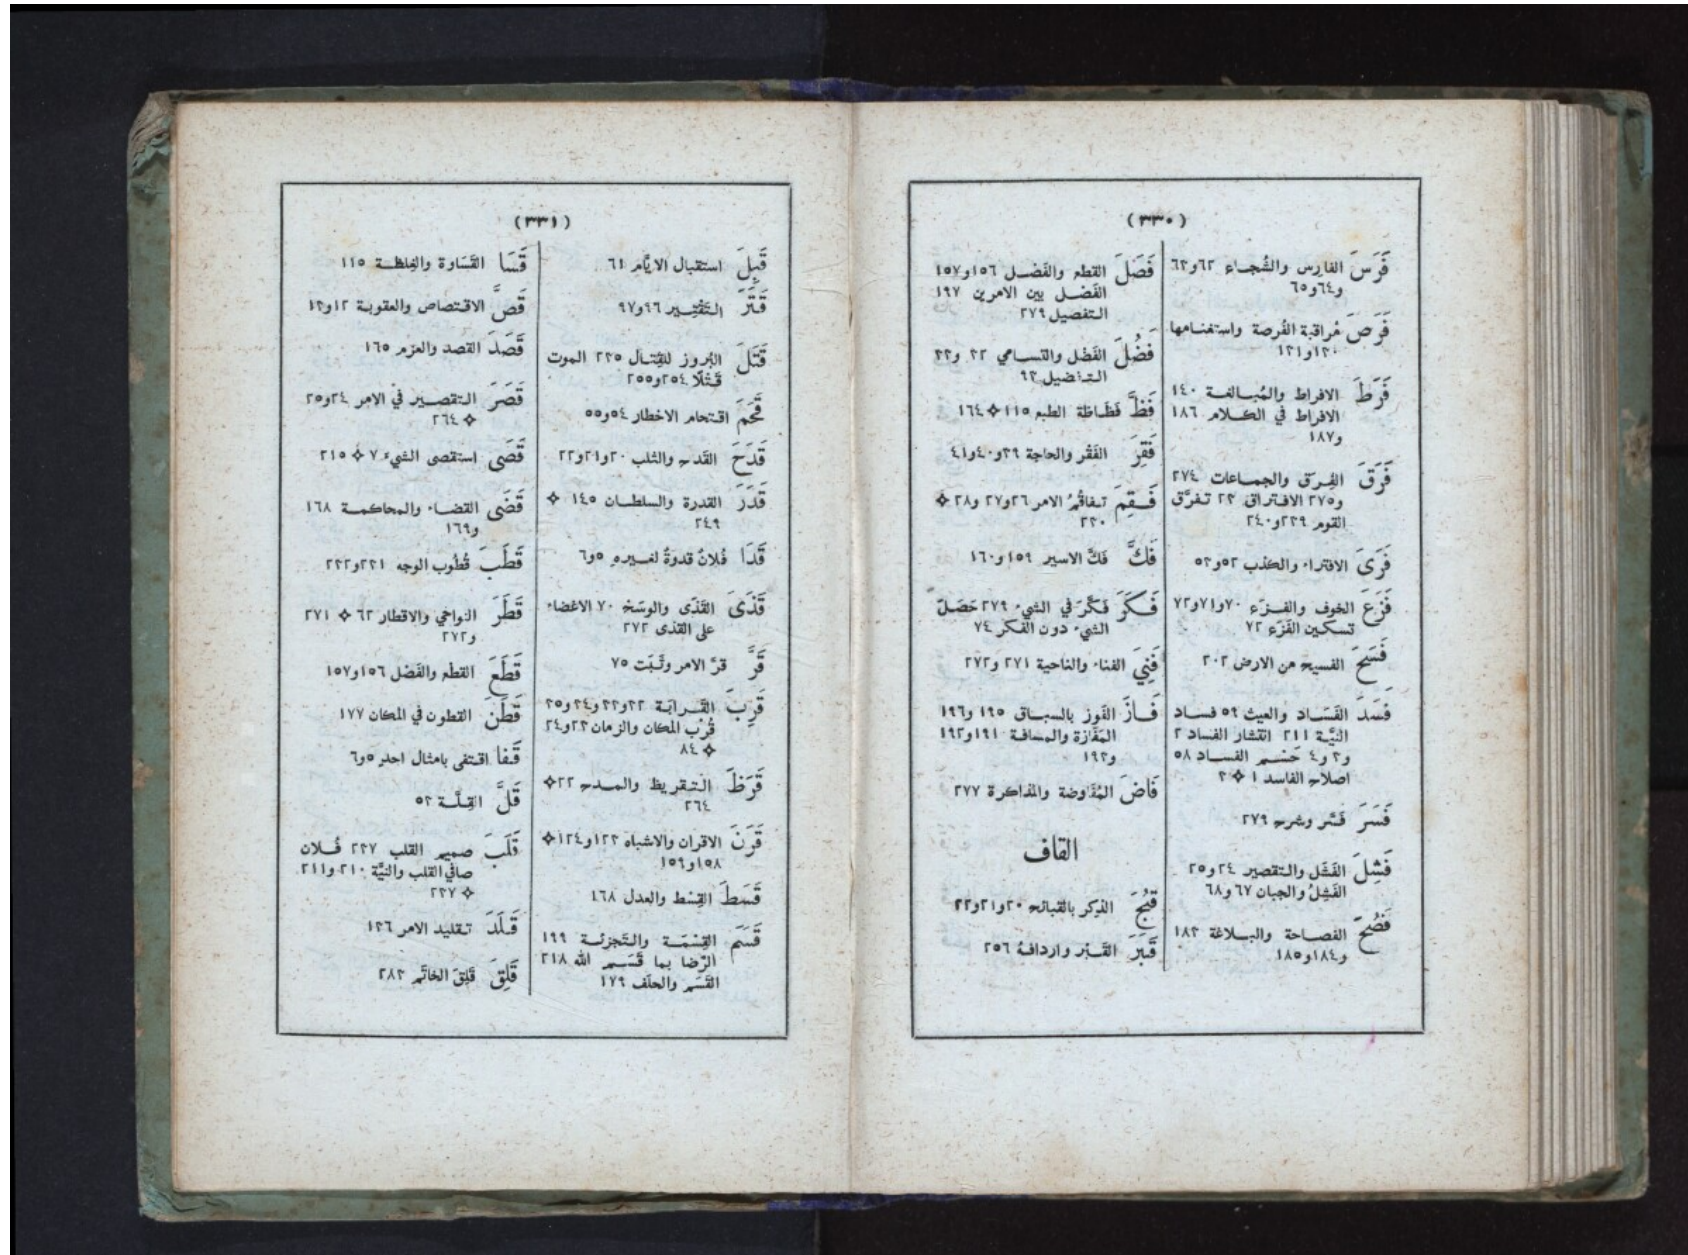 (٣٣٠)
فَرَسَ الفارِس والشُجـاع ٦٢و٦٣
و٦٤و٦٥
فَرَصَ مُراقبة الفُرصة واستغنـامها
١٢٠و١٢١
فَرَطَ الافراط والمُبـالغـة ١٤٠
الافراط في الكـلام ١٨٦
و١٨٧
فَرَقَ الفِـرَق والجمـاعات ٢٧٤
و٢٧٥ الافتراق ٢٣ تفرَّق
القوم ٢٣٩و٢٤٠
فَرَى الافتراء والكذب ٥٢و٥٣
فَزَعَ الخوف والفـزع ٧٠و٧١و٧٢
تسكين الفَزَع ٧٢
فَسَحَ الفسيح من الارض ٢٠٢
فَسَدَ الفَسَـاد والعيث ٥٩ فسـاد
النيَّة ٢١١ انتشار الفساد ٢
و٣ و٤ حَسْم الفسـاد ٥٨
اصلاح الفاسد ١ ✧ ٢
فَسَرَ فَسَّر وشرح ٢٧٩
فَشِلَ الفَشَل والتقصير ٢٤و٢٥
الفَشِلُ والجبان ٦٧و٦٨
فَصُحَ الفصـاحة والبـلاغة ١٨٣
و١٨٤و١٨٥
فَصَلَ القطع والفَصْـل ١٥٦و١٥٧
الفَصْل بين الامرين ١٩٧
التفصيل ٢٧٩
فَضُلَ الفَضْل والتسـامي ٢٢ و٢٣
التفضيل ٩٢
فَظَّ فَظَاظة الطبع ١١٥ ✧ ١٦٤
فَقِرَ الفَقْر والحاجة ٣٩و٤٠و٤١
فَـقِمَ تـفاقُمُ الامر ٢٦و٢٧ و٢٨ ✧
٢٣٠
فَكَّ فَكُّ الاسير ١٥٩و١٦٠
فَـكَرَ فَكَّرَ في الشيء ٢٧٩ حَصَلَ
الشيء دون الفكر ٧٤
فَنِيَ الفناء والناحية ٢٧١ و٢٧٢
فَـازَ الفَوز بالسبـاق ١٩٥ و١٩٦
المَفَازة والمسافة ١٩١و١٩٢
و١٩٣
فَاضَ المُفَاوضة والمذاكرة ٢٧٧
القاف
قَبُحَ الذِكر بالقبائح ٢٠و٢١و٢٢
قَبَرَ القَـبْر واردافهُ ٢٥٦
(٣٣١)
قَبِلَ استقبال الايَّام ٦١
قَتَّرَ التَقْتِـير ٩٦و٩٧
قَتَلَ البُروز للقِتـال ٢٣٥ الموت
قَـتْلًا ٢٥٤و٢٥٥
قَحَمَ اقتحام الاخطار ٥٤و٥٥
قَدَحَ القَدح والثلب ٢٠و٢١و٢٢
قَدَرَ القدرة والسلطـان ١٤٥ ✧
٢٤٩
قَدَا فُلانٌ قدوةٌ لغـيره ٥و٦
قَذَى القَذَى والوسَخ ٧٠ الاغضاء
على القذى ٢٧٢
قَرَّ قرَّ الامر وثَبَت ٧٥
قَرِبَ القَـرابة ٣٢و٣٣و٣٤و٣٥
قُرْب المكان والزمان ٢٣و٢٤
✧ ٨٤
قَرَظَ التـقريظ والمـدح ٢٢✧
٢٦٤
قَرَنَ الاقران والاشباه ١٢٣و١٢٤✧
١٥٨و١٥٩
قَسَطَ القِسْط والعدل ١٦٨
قَسَمَ القِسْمَـة والتَجزئـة ١٩٩
الرّضا بما قَسَـم الله ٢١٨
القَسَم والحلَف ١٧٩
قَسَا القَسَاوة والغِلظـة ١١٥
قَصَّ الاقتصاص والعقوبة ١٢و١٣
قَصَدَ القصد والعزم ١٦٥
قَصَرَ التقصـير في الامر ٢٤و٢٥
✧ ٢٦٤
قَصَى استقصى الشيء ٧ ✧ ٢١٥
قَضَى القضـاء والمحاكمـة ١٦٨
و١٦٩
قَطَبَ قُطُوب الوجه ٢٢١و٢٢٢
قَطَرَ النواحي والاقطار ٦٢ ✧ ٢٧١
و٢٧٢
قَطَعَ القطع والفَصْل ١٥٦و١٥٧
قَطَنَ القطون في المكان ١٧٧
قَـفا اقـتفى بامثال احدٍ ٥و٦
قَلَّ القِـلَّـة ٥٢
قَلَبَ صميم القلب ٢٢٧ فُـلان
صافي القلب والنيَّة ٢١٠و٢١١
✧ ٢٢٧
قَـلَدَ تـقليد الامر ١٢٦
قَلِقَ قَلِقَ الخاتَم ٢٨٢